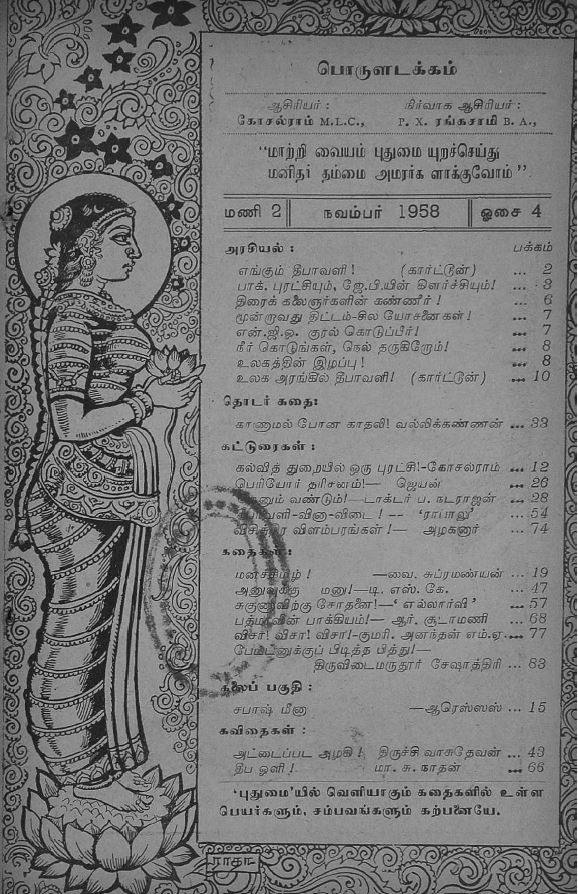 பொருளடக்கம்
ஆசிரியர் :
கோசல்ராம் M.L.C.,
நிர்வாக ஆசிரியர் :
P. X. ரங்கசாமி B. A.,
“மாற்றி வையம் புதுமை யுறச்செய்து
மனிதர் தம்மை அமரர்க ளாக்குவோம்”
மணி 2 நவம்பர் 1958 ஓசை 4
அரசியல் : பக்கம்
எங்கும் தீபாவளி ! (கார்ட்டூன்) ... 2
பாக். புரட்சியும், ஜே.பி.யின் கிளர்ச்சியும்! ... 3
திரைக் கலைஞர்களின் கண்ணீர் ! ... 6
மூன்றாவது திட்டம்-சில யோசனைகள் ! ... 7
என்.ஜி.ஓ. குரல் கொடுப்பீர்! ... 7
நீர் கொடுங்கள், நெல் தருகிறோம்! ... 8
உலகத்தின் இழப்பு ! ... 8
உலக அரங்கில் தீபாவளி! (கார்ட்டூன்) ... 10
தொடர் கதை:
காணாமல் போன காதலி! வல்லிக்கண்ணன் ... 33
கட்டுரைகள் :
கல்வித் துறையில் ஒரு புரட்சி!-கோசல்ராம் ... 12
பெரியோர் தரிசனம்!— ஜெயன் ... 26
வண்டும்!—டாக்டர் ப. நடராஜன் ... 28
தீபாவளி-வினா-விடை ! -- ‘ராபாலு’ ... 54
விசித்திர விளம்பரங்கள் !— அழகனார் ... 74
கதைகள் :
மனச்சிமிழ் ! —வை. சுப்ரமண்யன் ... 19
அனுவுக்கு மனு!—டி. எஸ். கே. ... 47
சுகுணாவிற்கு சோதனை!—‘எல்லார்வி’ ... 57
பத்மாவின் பாக்கியம்!— ஆர். சூடாமணி ... 68
விசா! விசா! விசா!-குமரி. அனந்தன் எம்.ஏ. ... 77
பேட்மனுக்குப் பிடித்த பித்து!—
திருவிடைமருதூர் சேஷாத்திரி ... 83
கலைப் பகுதி :
சபாஷ் மீனா —ஆரெஸ்ஸஸ் ... 15
கவிதைகள் :
அட்டைப்பட அழகி ! திருச்சி வாசுதேவன் ... 43
தீப ஒளி ! மா. சு. நாதன் ... 66
‘புதுமை’யில் வெளியாகும் கதைகளில் உள்ள
பெயர்களும், சம்பவங்களும் கற்பனையே.